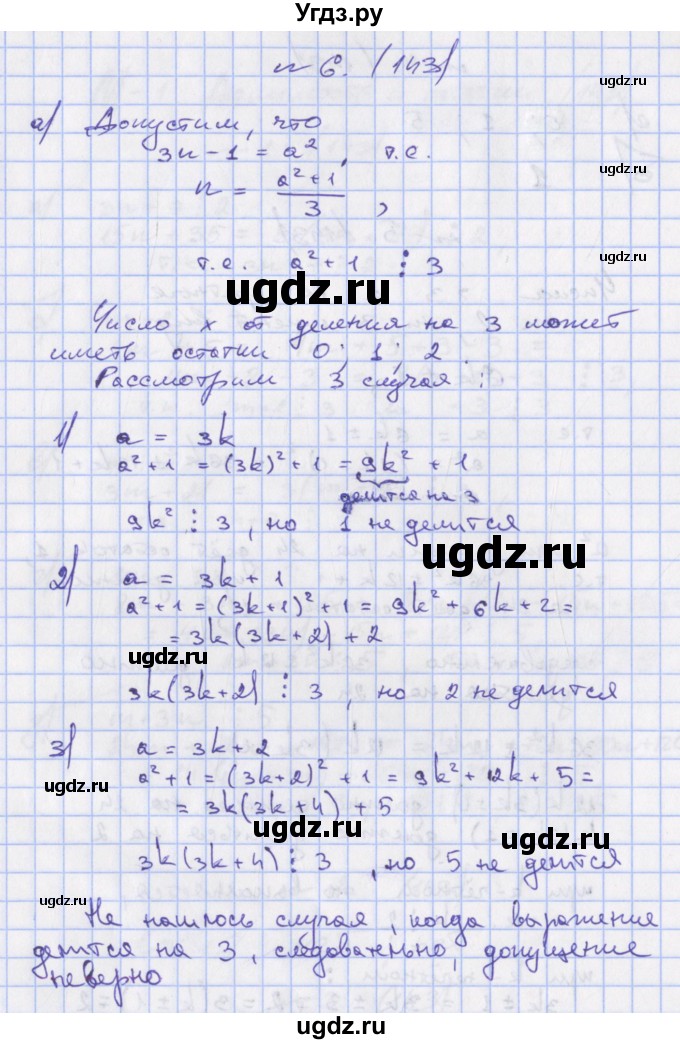 Угдз.ру
n 6. (143)
ugdz.ru
а) Допустим, что
3n - 1 = a², т.е.
ugdz.ru
n = (a² + 1)/3 ,
ugdz.ru
т.е. a² + 1 ⋮ 3
ugdz.ru
Число x от деления на 3 может
иметь остатки 0; 1; 2.
Рассмотрим 3 случая:
1) a = 3k
a² + 1 = (3k)² + 1 = 9k² + 1
ugdz.ru
делится на 3
9k² ⋮ 3, но 1 не делится
ugdz.ru
2) a = 3k + 1
a² + 1 = (3k + 1)² + 1 = 9k² + 6k + 2 =
= 3k(3k + 2) + 2
ugdz.ru
ugdz.ru
3k(3k + 2) ⋮ 3, но 2 не делится
3) a = 3k + 2
a² + 1 = (3k + 2)² + 1 = 9k² + 12k + 5 =
ugdz.ru
= 3k(3k + 4) + 5
ugdz.ru
ugdz.ru
3k(3k + 4) ⋮ 3, но 5 не делится
Не нашлось случая, когда выражение
делится на 3, следовательно, допущение
неверно
ugdz.ru
ugdz.ru
ugdz.ru